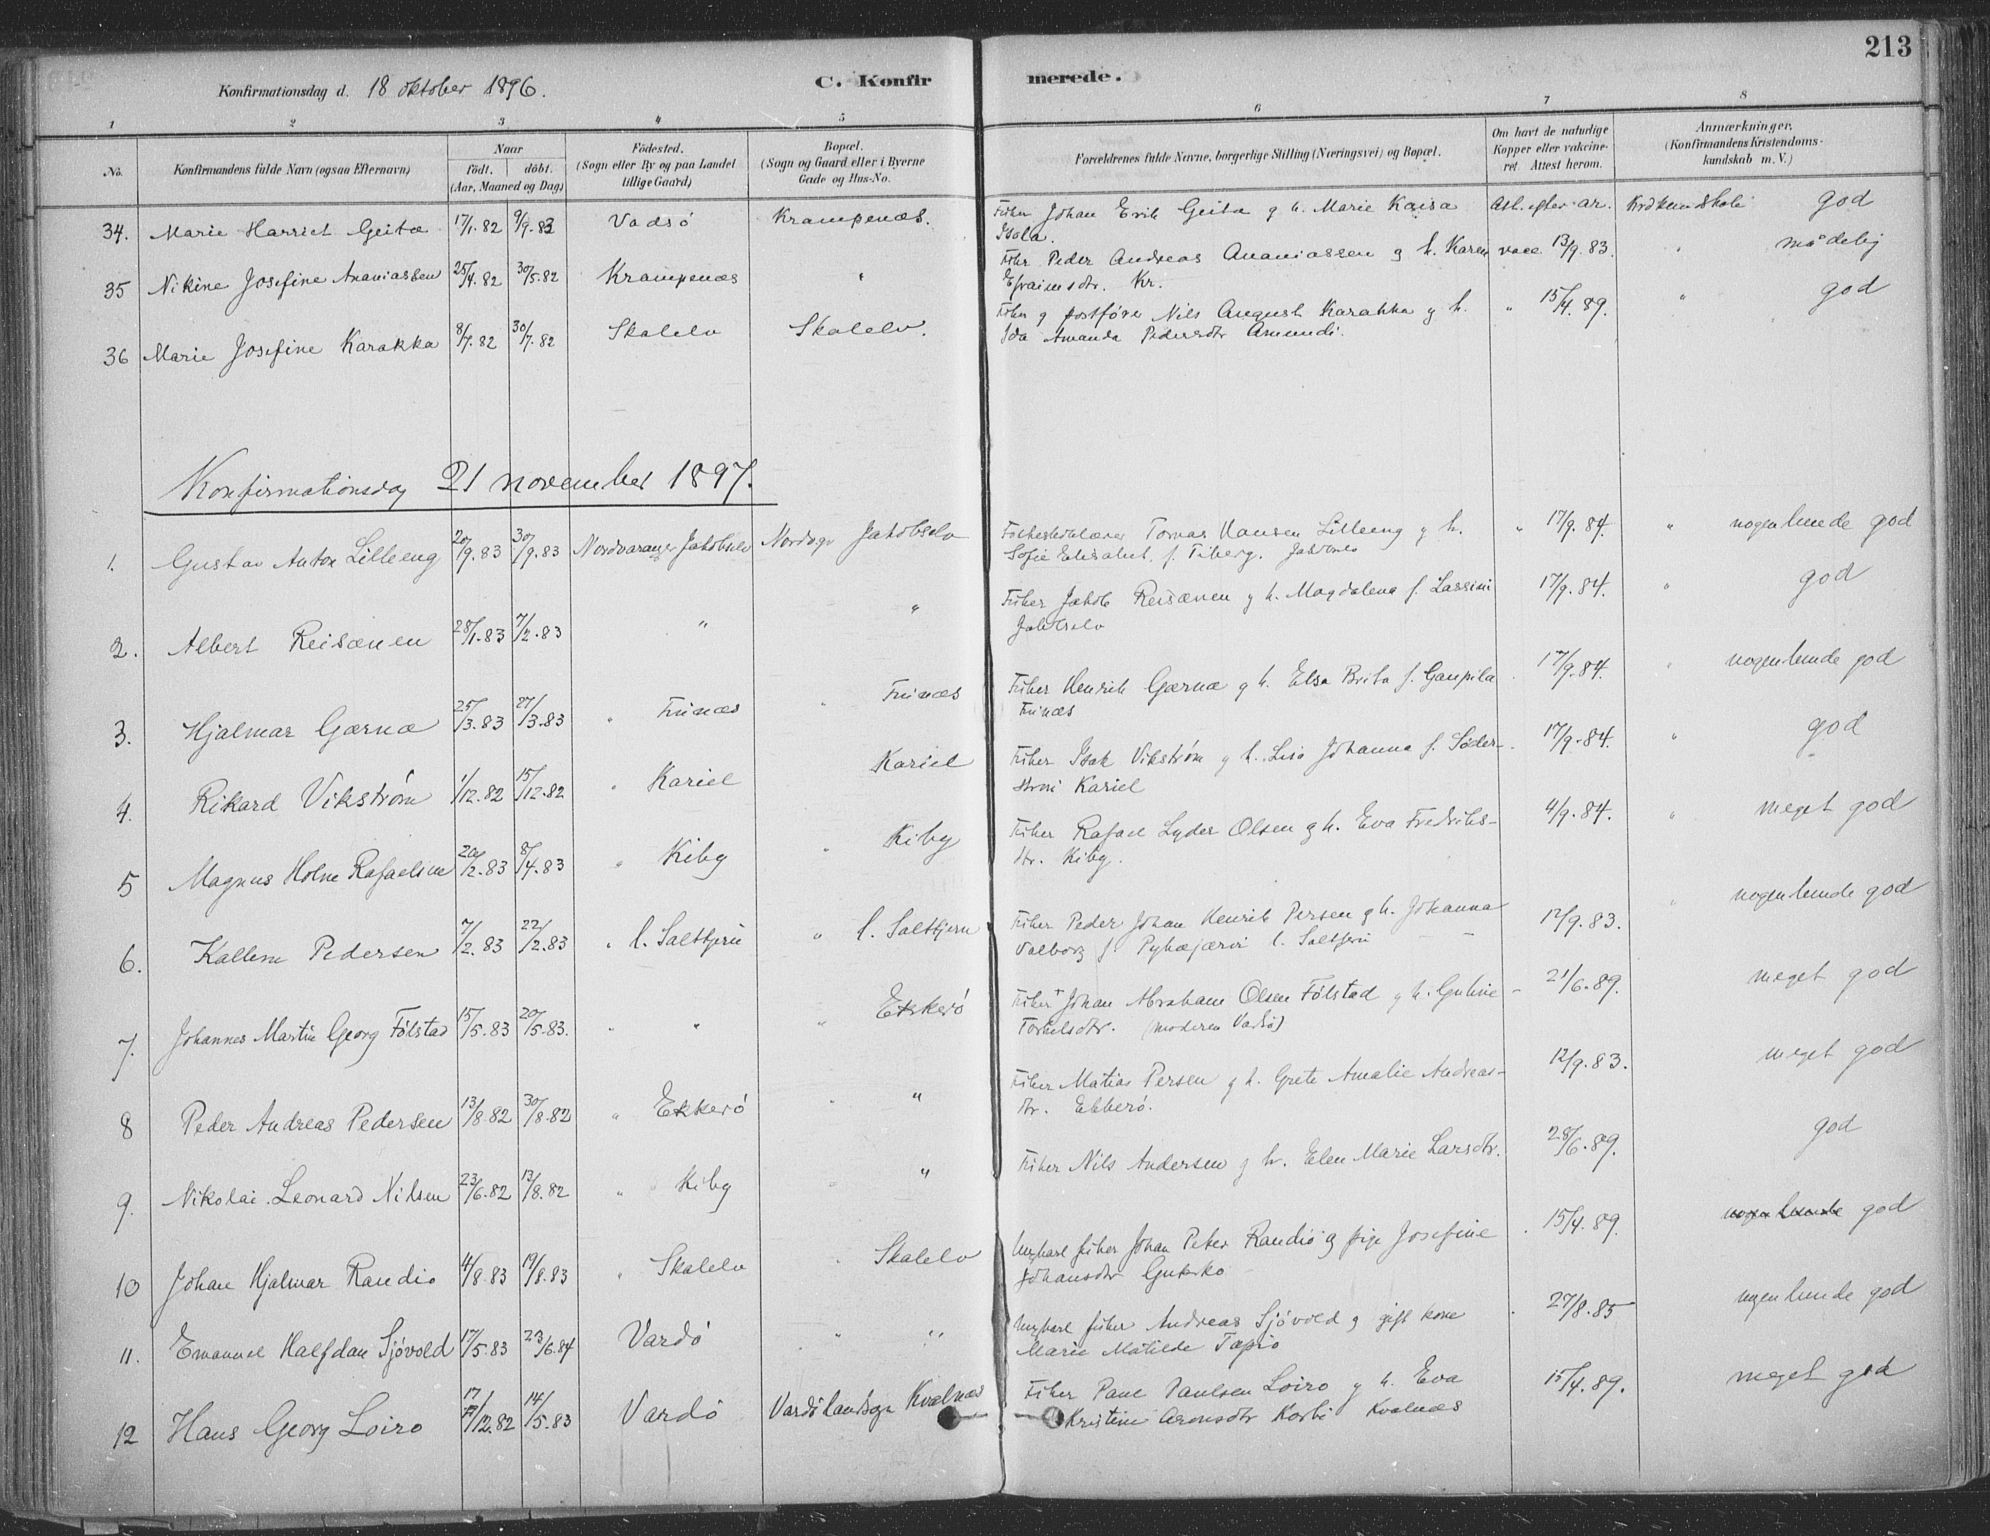 213
Konfirmationsdag d. 18 oktober 1896. C. Konfir merede.
1 2 3 4 5 6 7 8
No. Konfirmandens fulde Navn (ogsaa Efternavn) Naar født. døbt. (Aar, Maaned og Dag) Fødested. (Sogn eller By og paa Landet tillige Gaard) Bopæl. (Sogn og Gaard eller i Byerne Gade og Hus-No. Forældrenes fulde Navne, borgerlige Stilling (Næringsvei) og Bopæl. Om havt de naturlige Kopper eller vakcineret. Attest herom. Anmærkninger. (Konfirmandens Kristendomskundskab m. V.)
34. Marie Harriet Geita 17/1.82 9/9.83 Vadsö Krampenæs. Fisker Johan Erik Geita g h. Marie Kaisa god
Isola.
35 Nikine Josefine Ananiassen 25/4.82 30/5.82 Krampenæs " Fisker Peder Andreas Ananiassen g h. Karen vacc 13/9.83. " mådelig
Efraimsdtr. Kr.
36 Marie Josefine Karakka 8/7.82 30/7.82 Skalelv Skalelv. Fisker g postfører Nils August Karakka g h. " 15/4.89. " god
Ida Amanda Pedersdtr Amundi.
Konfirmationsdag 21 november 1897.
1. Gustav Anton Lilleeng 20/9.83 30/9.83 Nordvaranger Jakobselv Nordvgr Jakobselv Tomas Hansen Lilleeng g h. " 17/9.84. " nogenlunde god
Sofie Elisabet f. Tiberg. Jakobselv
2. Albert Reisænen 28/1.83 7/2.83 " " Fisker Jakob Reisænen g h. Magdalena f. Lassini 17/9.84. " god
Jakobselv
3. Hjalmar Gærnæ 25/3.83 27/3.83 " Finnæs " Finnæs Fisker Henrik Gærnæ g h. Elsa Brita f. Ganpila 17/9.84. " nogenlunde god
Finnæs
4. Rikard Vikstrøm 1/12.82 15/12.82 " Kariel Kariel Fisker Isak Vikstrøm g h. Lisa Johanna f. Søder- 17/9.84. " god
strøm Kariel
5 Magnus Holm Rafaelsen 20/2.83 8/4.83 " Kiby " Kiby Fisker Rafael Lyder Olsen g h. Eva Fredriks- 4/9.84. " meget god
dtr. Kiby.
6. Kallem Pedersen 7/2.83 22/2.83 " l. Saltfjern " l. Saltfjern Fisker Peder Johan Henrik Persen g h. Johanna 12/9.83. " nogenlunde god
Valborg f. Pyhæjærvi l. Saltfjern
7. Johannes Martin Georg Følstad 15/5.83 20/5.83. " " " Ekkerö Fisker Johan Abraham Olsen Følstad g h. Guline 21/6.89. meget god
Torkelsdtr. (moderen Vadsø)
8 Peder Andreas Pedersen 13/8.82 30/8.82 " Ekkerö " " Fisker Matias Persen g h. Grete Amalie Andreas- 12/9.83. meget god
dtr. Ekkerö.
9. Nikolai Leonard Nilsen 23/6.82 13/8.82 " Kiby " " Fisker Nils Andersen g h. Elen Marie Larsdtr. 28/6.89. god
10 Johan Hjalmar Randio 4/8.83 19/8.83 " Skalelv " Skalelv Ungkarl fisker Johan Peter Randio g pige Josefine 15/4.89. nogenlunde god
Johansdtr
11. Emanuel Halfdan Sjövold 17/5.83 23/6.84 Vardö " " Ungkarl fisker Andreas Sjövold g gift kone 27/8.85 nogenlunde god
Marie Matilde Tapio
12 Hans Georg Loiro 17/12.82 14/5.83 Vardö Vardö landsogn Kvalnæs Fisker Paul Paulsen Loiro g h. Eva 15/4.89. meget god
Kristine Aronsdtr Korbi Kvalnæs